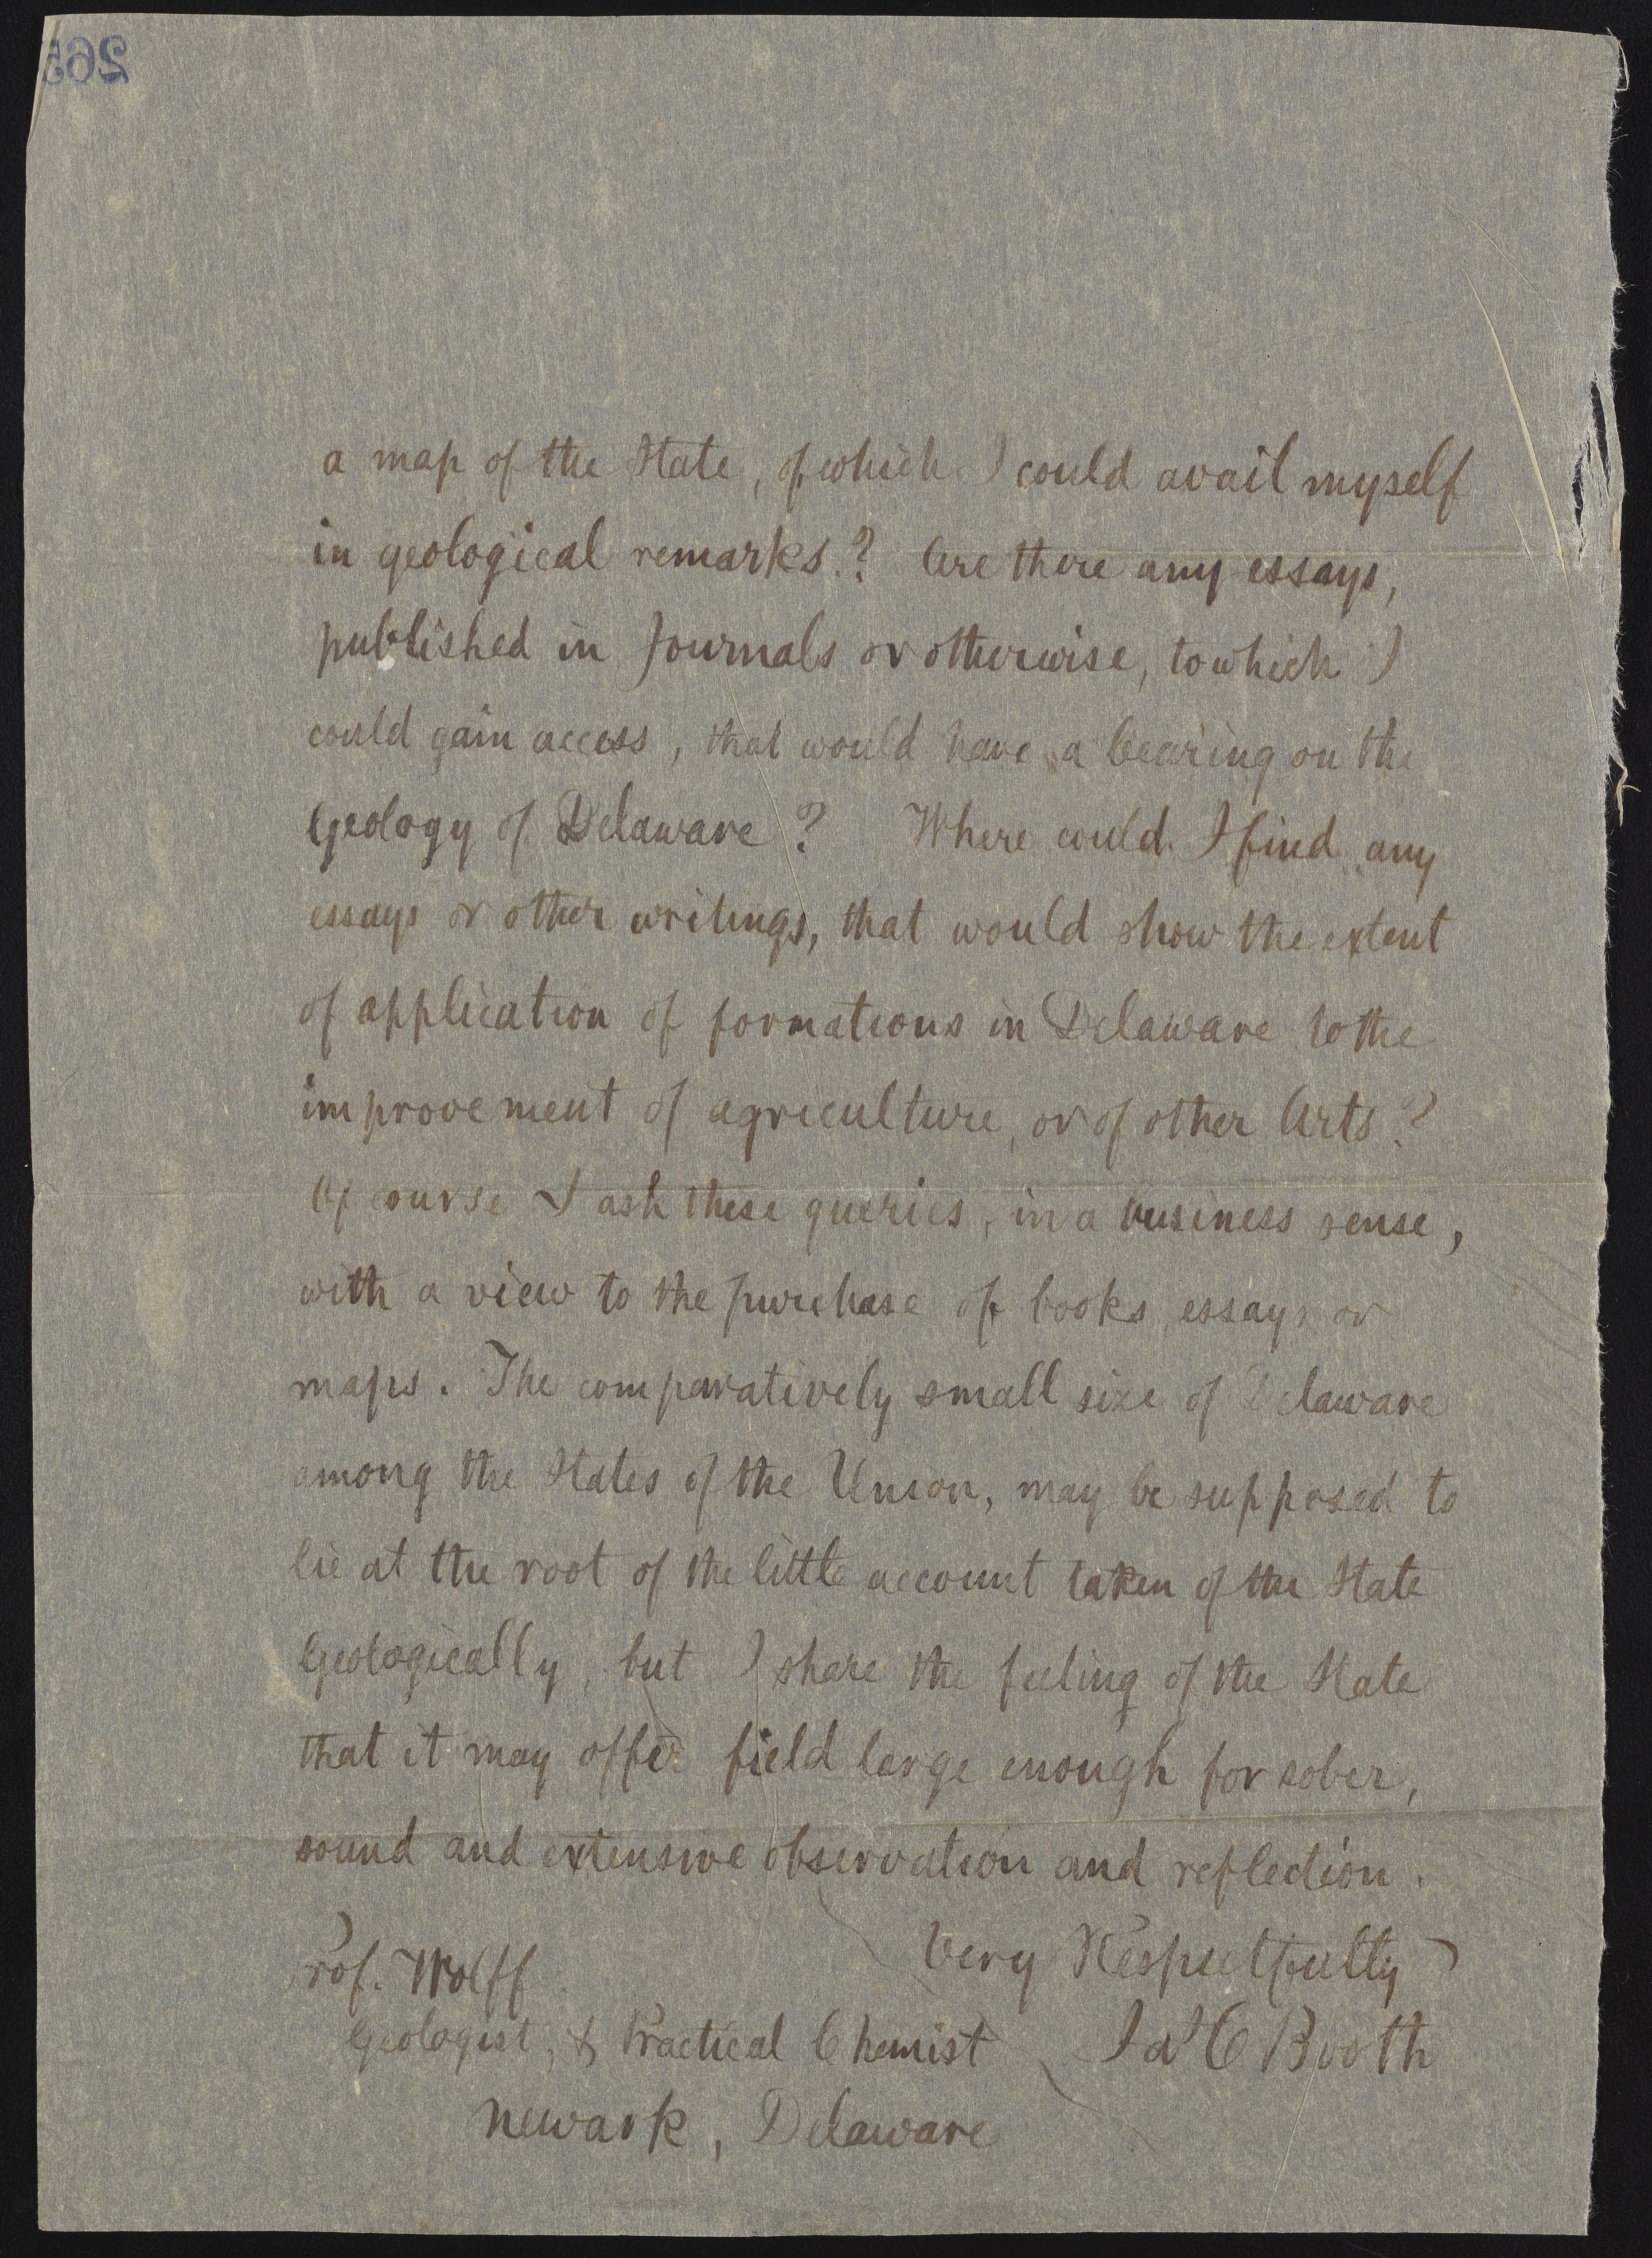 265
a map of the State, of which I could avail myself
in geological remarks.? Are there any essays,
published in Journals or otherwise, to which I
could gain access, that would have a bearing on the
Geology of Delaware? Where could I find any
essays or other writings, that would show the extent
of application of formations in Delaware to the
improvement of agriculture, or of other Arts?
Of course I ask these queries, in a business sense,
with a view to the purchase of books, essays or
maps. The comparatively small size of Delaware
among the States of the Union, may be supposed to
lie at the root of the little account taken of the State
Geologically, but I share the feeling of the State
that it may offer field large enough for sober,
sound and extensive observation and reflection.
Very Respectfully
Prof. Wolff
Geologist, & Practical Chemist Jas C Booth
Newark, Delaware